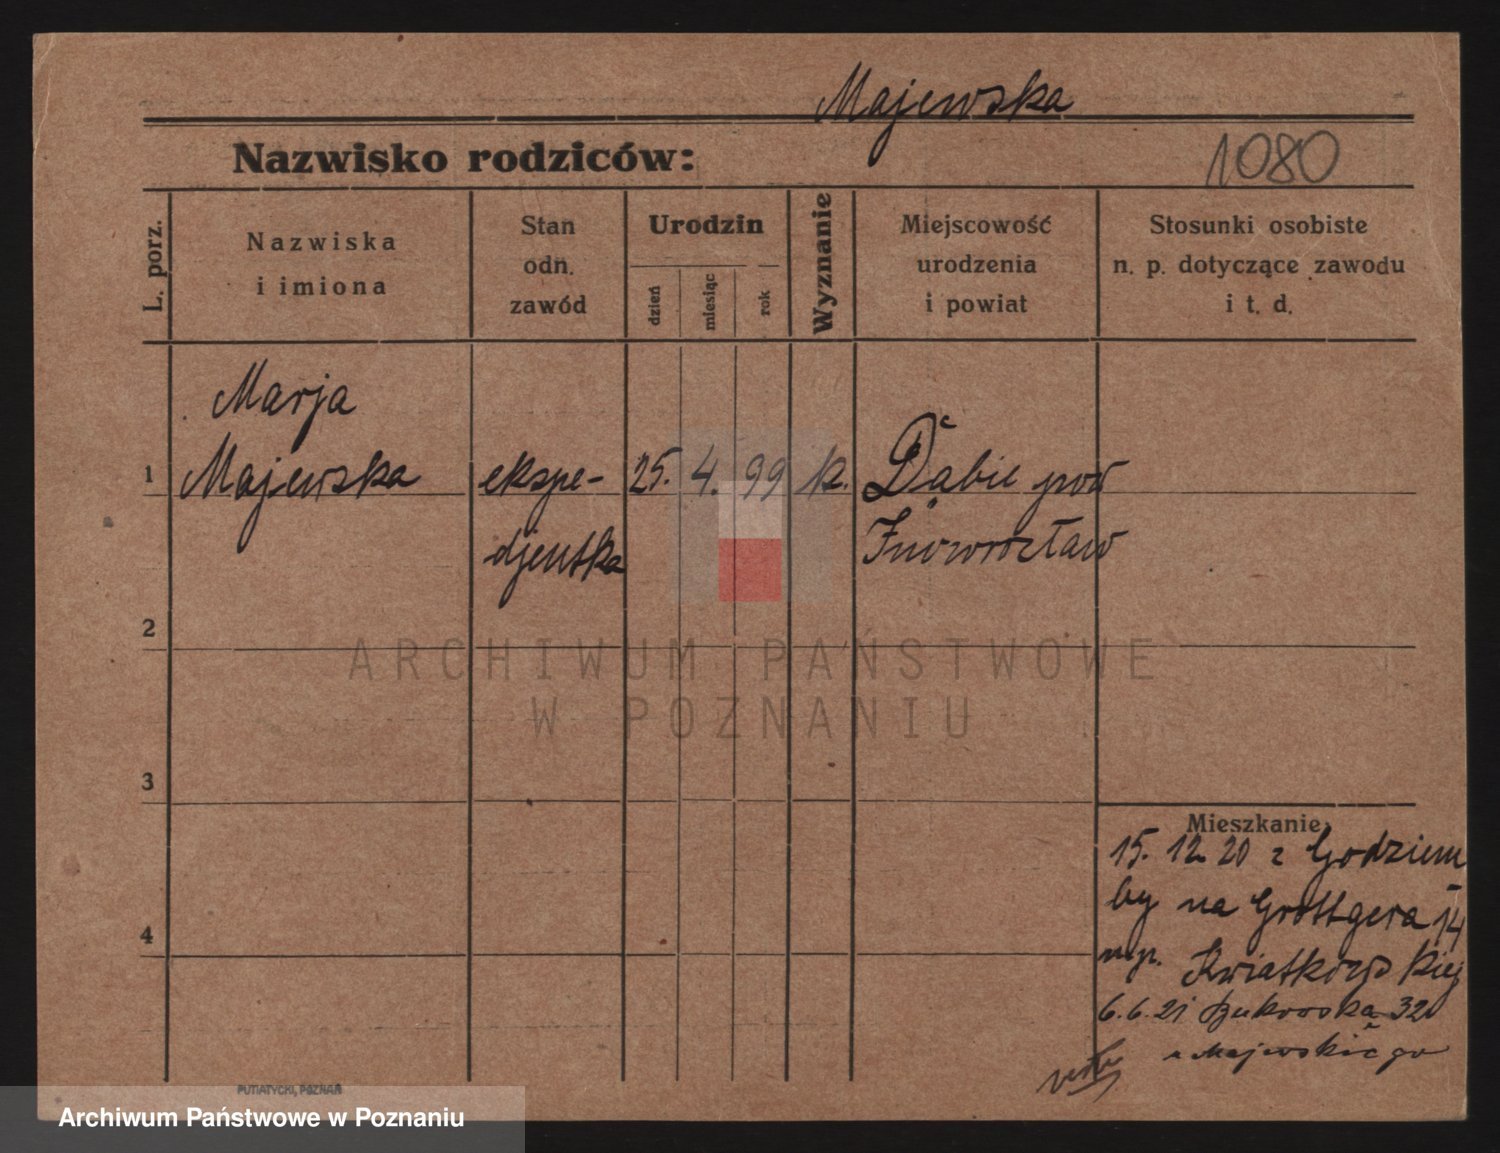 Majewska
Nazwisko rodziców:
1080
L. porz.
Nazwiska
i imiona
Stan
odn.
zawód
Urodzin
dzień
miesiąc
rok
Wyznanie
Miejscowość
urodzenia
i powiat
Stosunki osobiste
n. p. dotyczące zawodu
i t. d.
Marja
1 Majewska ekspe- 25. 4. 99 k. Dąbie pow
djentka Inowrocław
2
ARCHIWUM PAŃSTWOWE
W POZNANIU
3
Mieszkanie
15. 12 20 z Godziem
by na Grottgera 14
Kwiatkowskiej
4
6.6.21 Bukowska 32
u Majewskiego
PUTIATYCKI, POZNAŃ
Archiwum Państwowe w Poznaniu